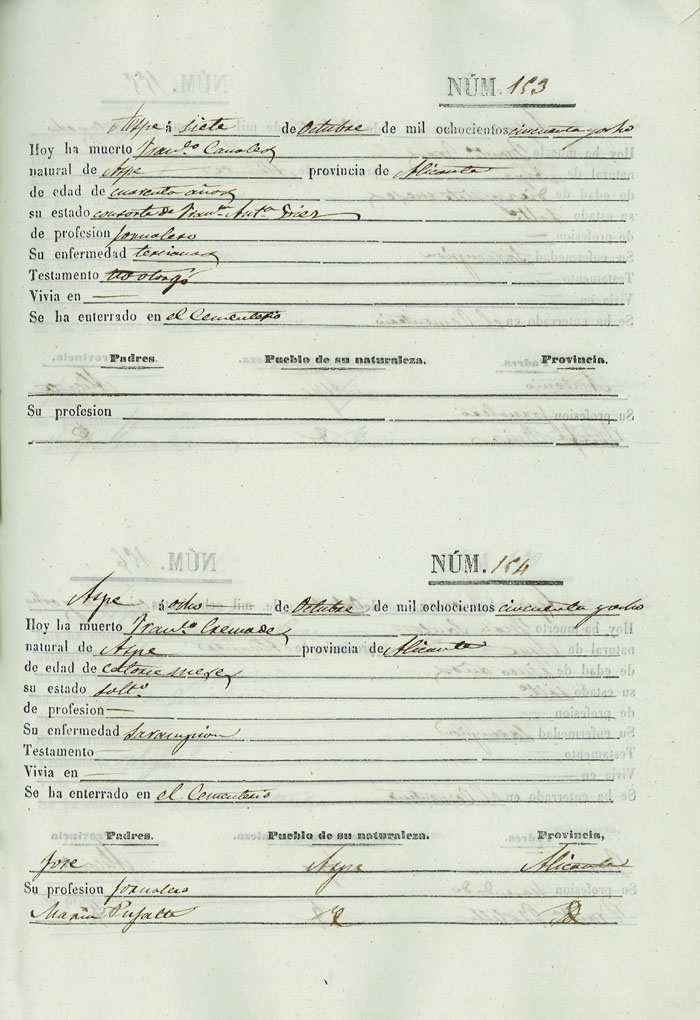 NÚM. 153
Aspe á siete de Octubre de mil ochocientos cincuenta y ocho
Hoy ha muerto Franco. Canales
natural de Aspe provincia de Alicante
de edad de cuarenta años
su estado consorte de Franca. Anta.
de profesion jornalero
Su enfermedad tercianas
Testamento no otorgó
Vivia en —
Se ha enterrado en el Cementerio
Padres. Pueblo de su naturaleza. Provincia.
Su profesion
NÚM. 154
Aspe á ocho de Octubre de mil ochocientos cincuenta y ocho
Hoy ha muerto Franco. Cremades
natural de Aspe provincia de Alicante
de edad de catorce meses
su estado solto.
de profesion —
Su enfermedad sarampion
Testamento —
Vivia en —
Se ha enterrado en el Cementerio
Padres. Pueblo de su naturaleza. Provincia,
Jose Aspe Alicante
Su profesion jornalero
Maria Pujalte